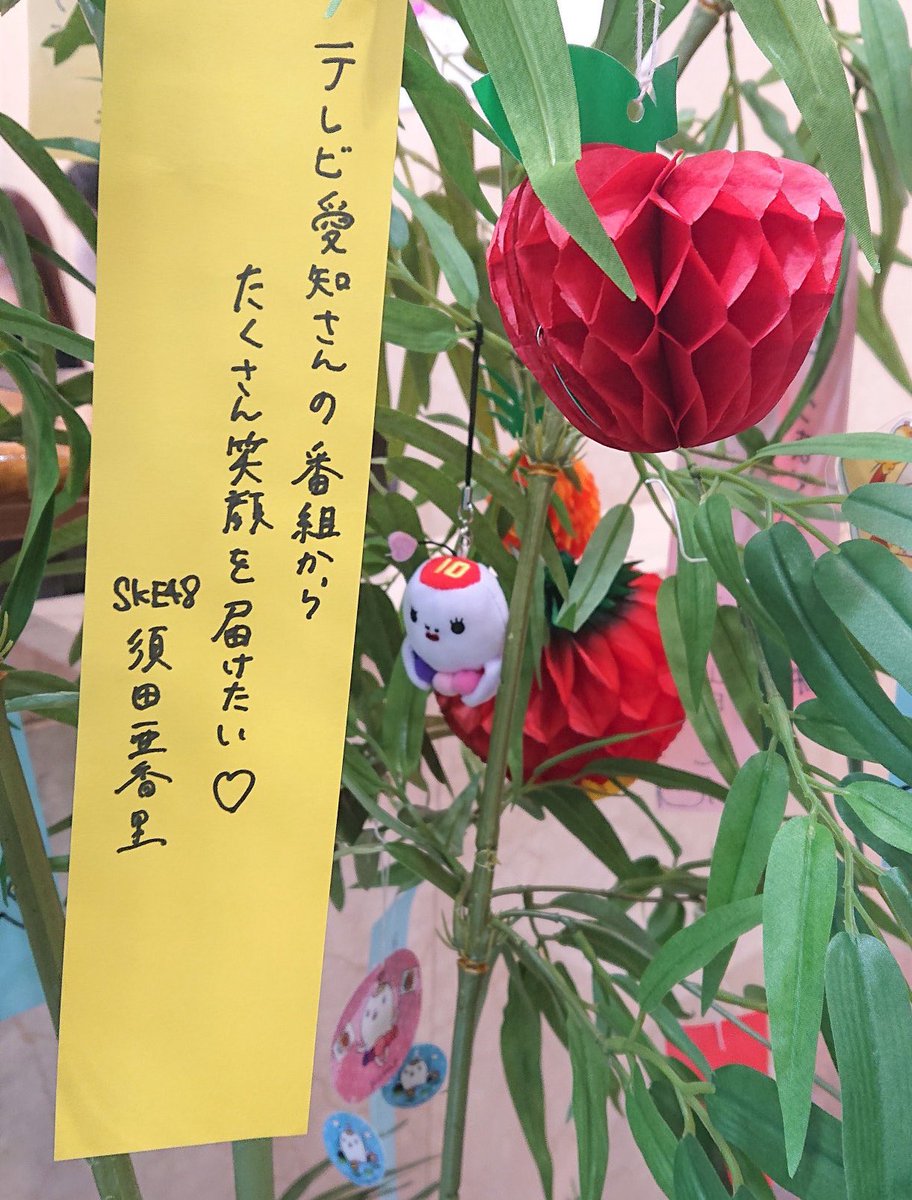 テレビ愛知さんの番組から
たくさん笑顔を届けたい♡
SKE48 須田亜香里
10